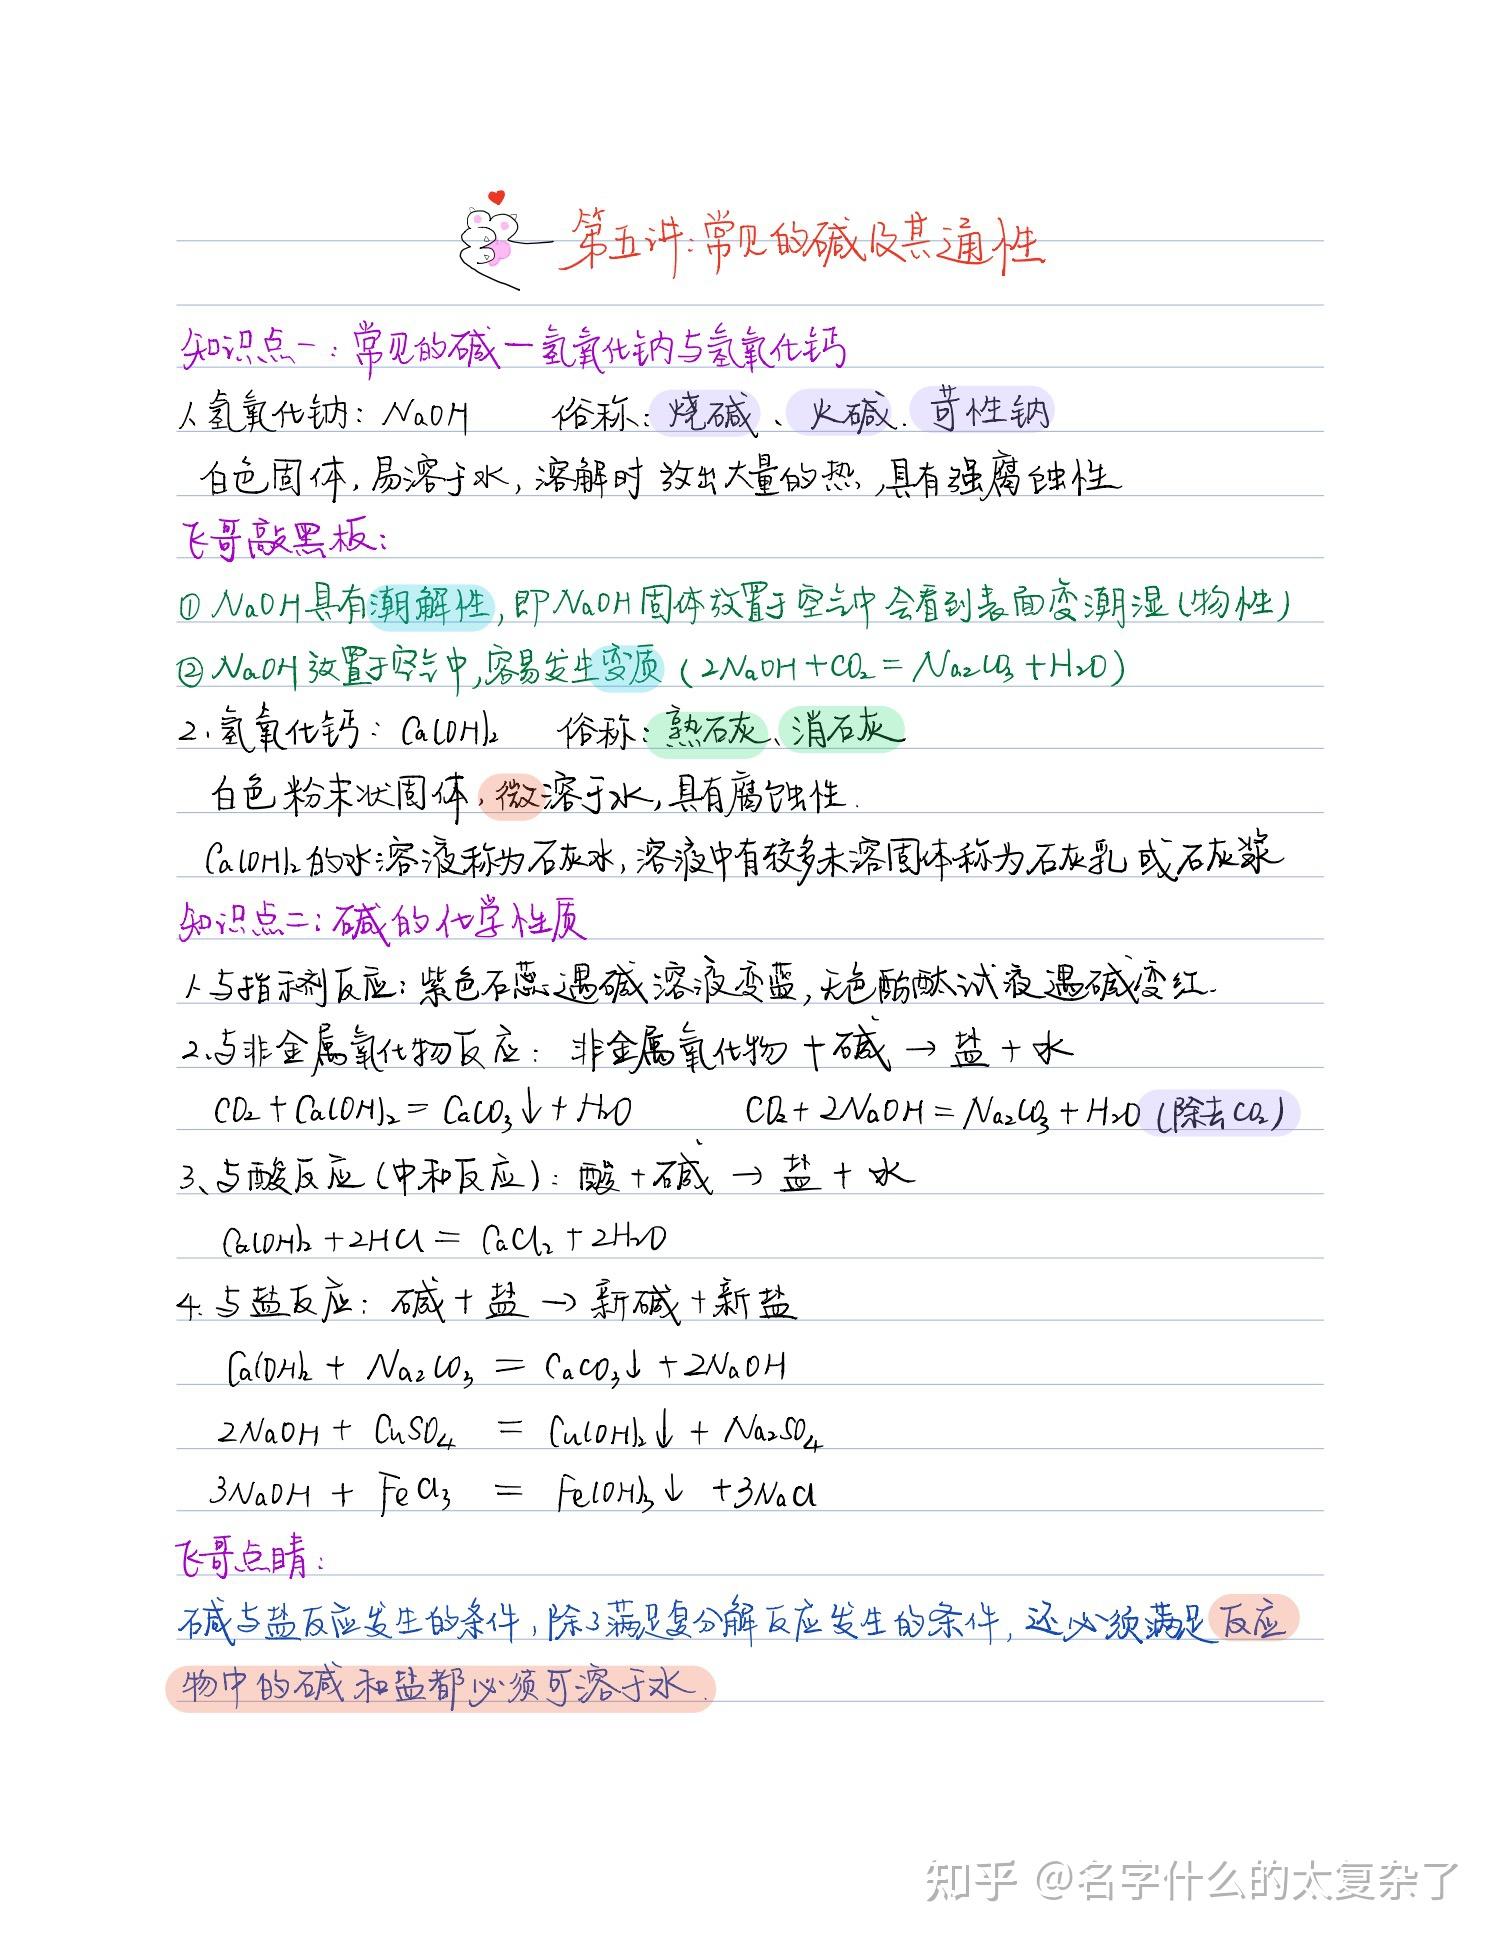 第五讲:常见的碱及其通性
知识点一:常见的碱—氢氧化钠与氢氧化钙
1.氢氧化钠: NaOH 俗称:烧碱、火碱.苛性钠
白色固体,易溶于水,溶解时放出大量的热,具有强腐蚀性
飞哥敲黑板:
① NaOH具有潮解性,即NaOH固体放置于空气中会看到表面变潮湿(物性)
② NaOH放置于空气中,容易发生变质(2NaOH+CO₂=Na₂CO₃+H₂O)
2.氢氧化钙: Ca(OH)₂ 俗称:熟石灰、消石灰
白色粉末状固体,微溶于水,具有腐蚀性.
Ca(OH)₂的水溶液称为石灰水,溶液中有较多未溶固体称为石灰乳或石灰浆
知识点二:碱的化学性质
1.与指示剂反应:紫色石蕊遇碱溶液变蓝,无色酚酞试液遇碱变红.
2.与非金属氧化物反应: 非金属氧化物+碱→盐+水
CO₂+Ca(OH)₂=CaCO₃↓+H₂O CO₂+2NaOH=Na₂CO₃+H₂O(除去CO₂)
3、与酸反应(中和反应):酸+碱→盐+水
Ca(OH)₂+2HCl=CaCl₂+2H₂O
4.与盐反应:碱+盐→新碱+新盐
Ca(OH)₂+Na₂CO₃=CaCO₃↓+2NaOH
2NaOH+CuSO₄=Cu(OH)₂↓+Na₂SO₄
3NaOH+FeCl₃=Fe(OH)₃↓+3NaCl
飞哥点睛:
碱与盐反应发生的条件,除了满足复分解反应发生的条件,还必须满足反应
物中的碱和盐都必须可溶于水.
知乎 @名字什么的太复杂了